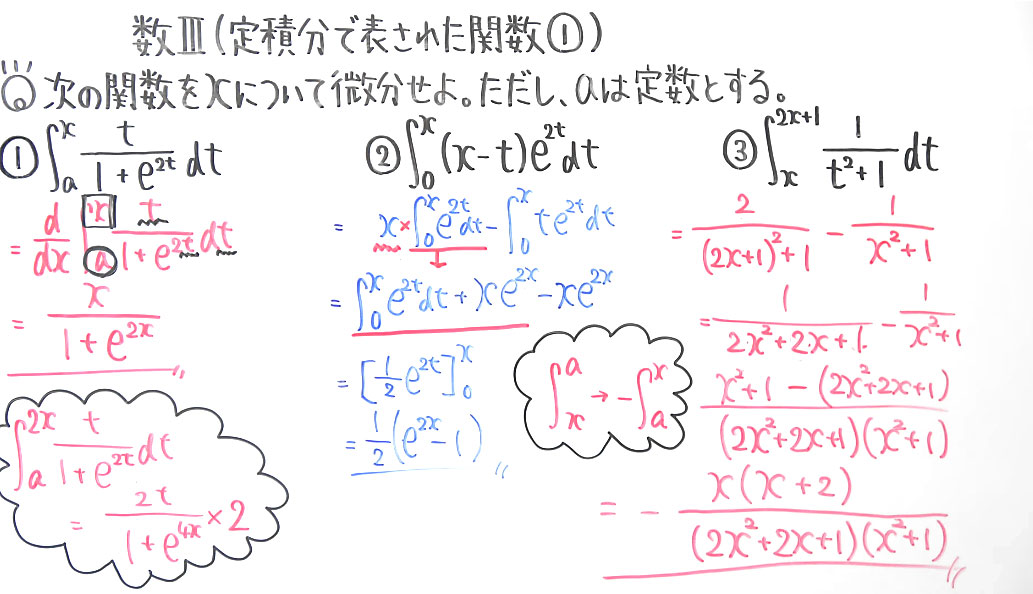 数Ⅲ(定積分で表された関数①)
次の関数をxについて微分せよ。ただし、aは定数とする。
① ∫_a^x t/(1+e^{2t}) dt
= d/dx ∫_a^x t/(1+e^{2t}) dt
= x/(1+e^{2x})
∫_a^{2x} t/(1+e^{2t}) dt
= 2t/(1+e^{4x}) ×2
② ∫_0^x (x-t)e^{2t}dt
= x×∫_0^x e^{2t}dt - ∫_0^x te^{2t}dt
= ∫_0^x e^{2t}dt + xe^{2x} - xe^{2x}
= [1/2 e^{2t}]_0^x
= 1/2 (e^{2x}-1)
∫_x^a → -∫_a^x
③ ∫_x^{2x+1} 1/(t²+1) dt
= 2/((2x+1)²+1) - 1/(x²+1)
= 1/(2x²+2x+1) - 1/(x²+1)
(x²+1-(2x²+2x+1))/((2x²+2x+1)(x²+1))
= - x(x+2)/((2x²+2x+1)(x²+1))